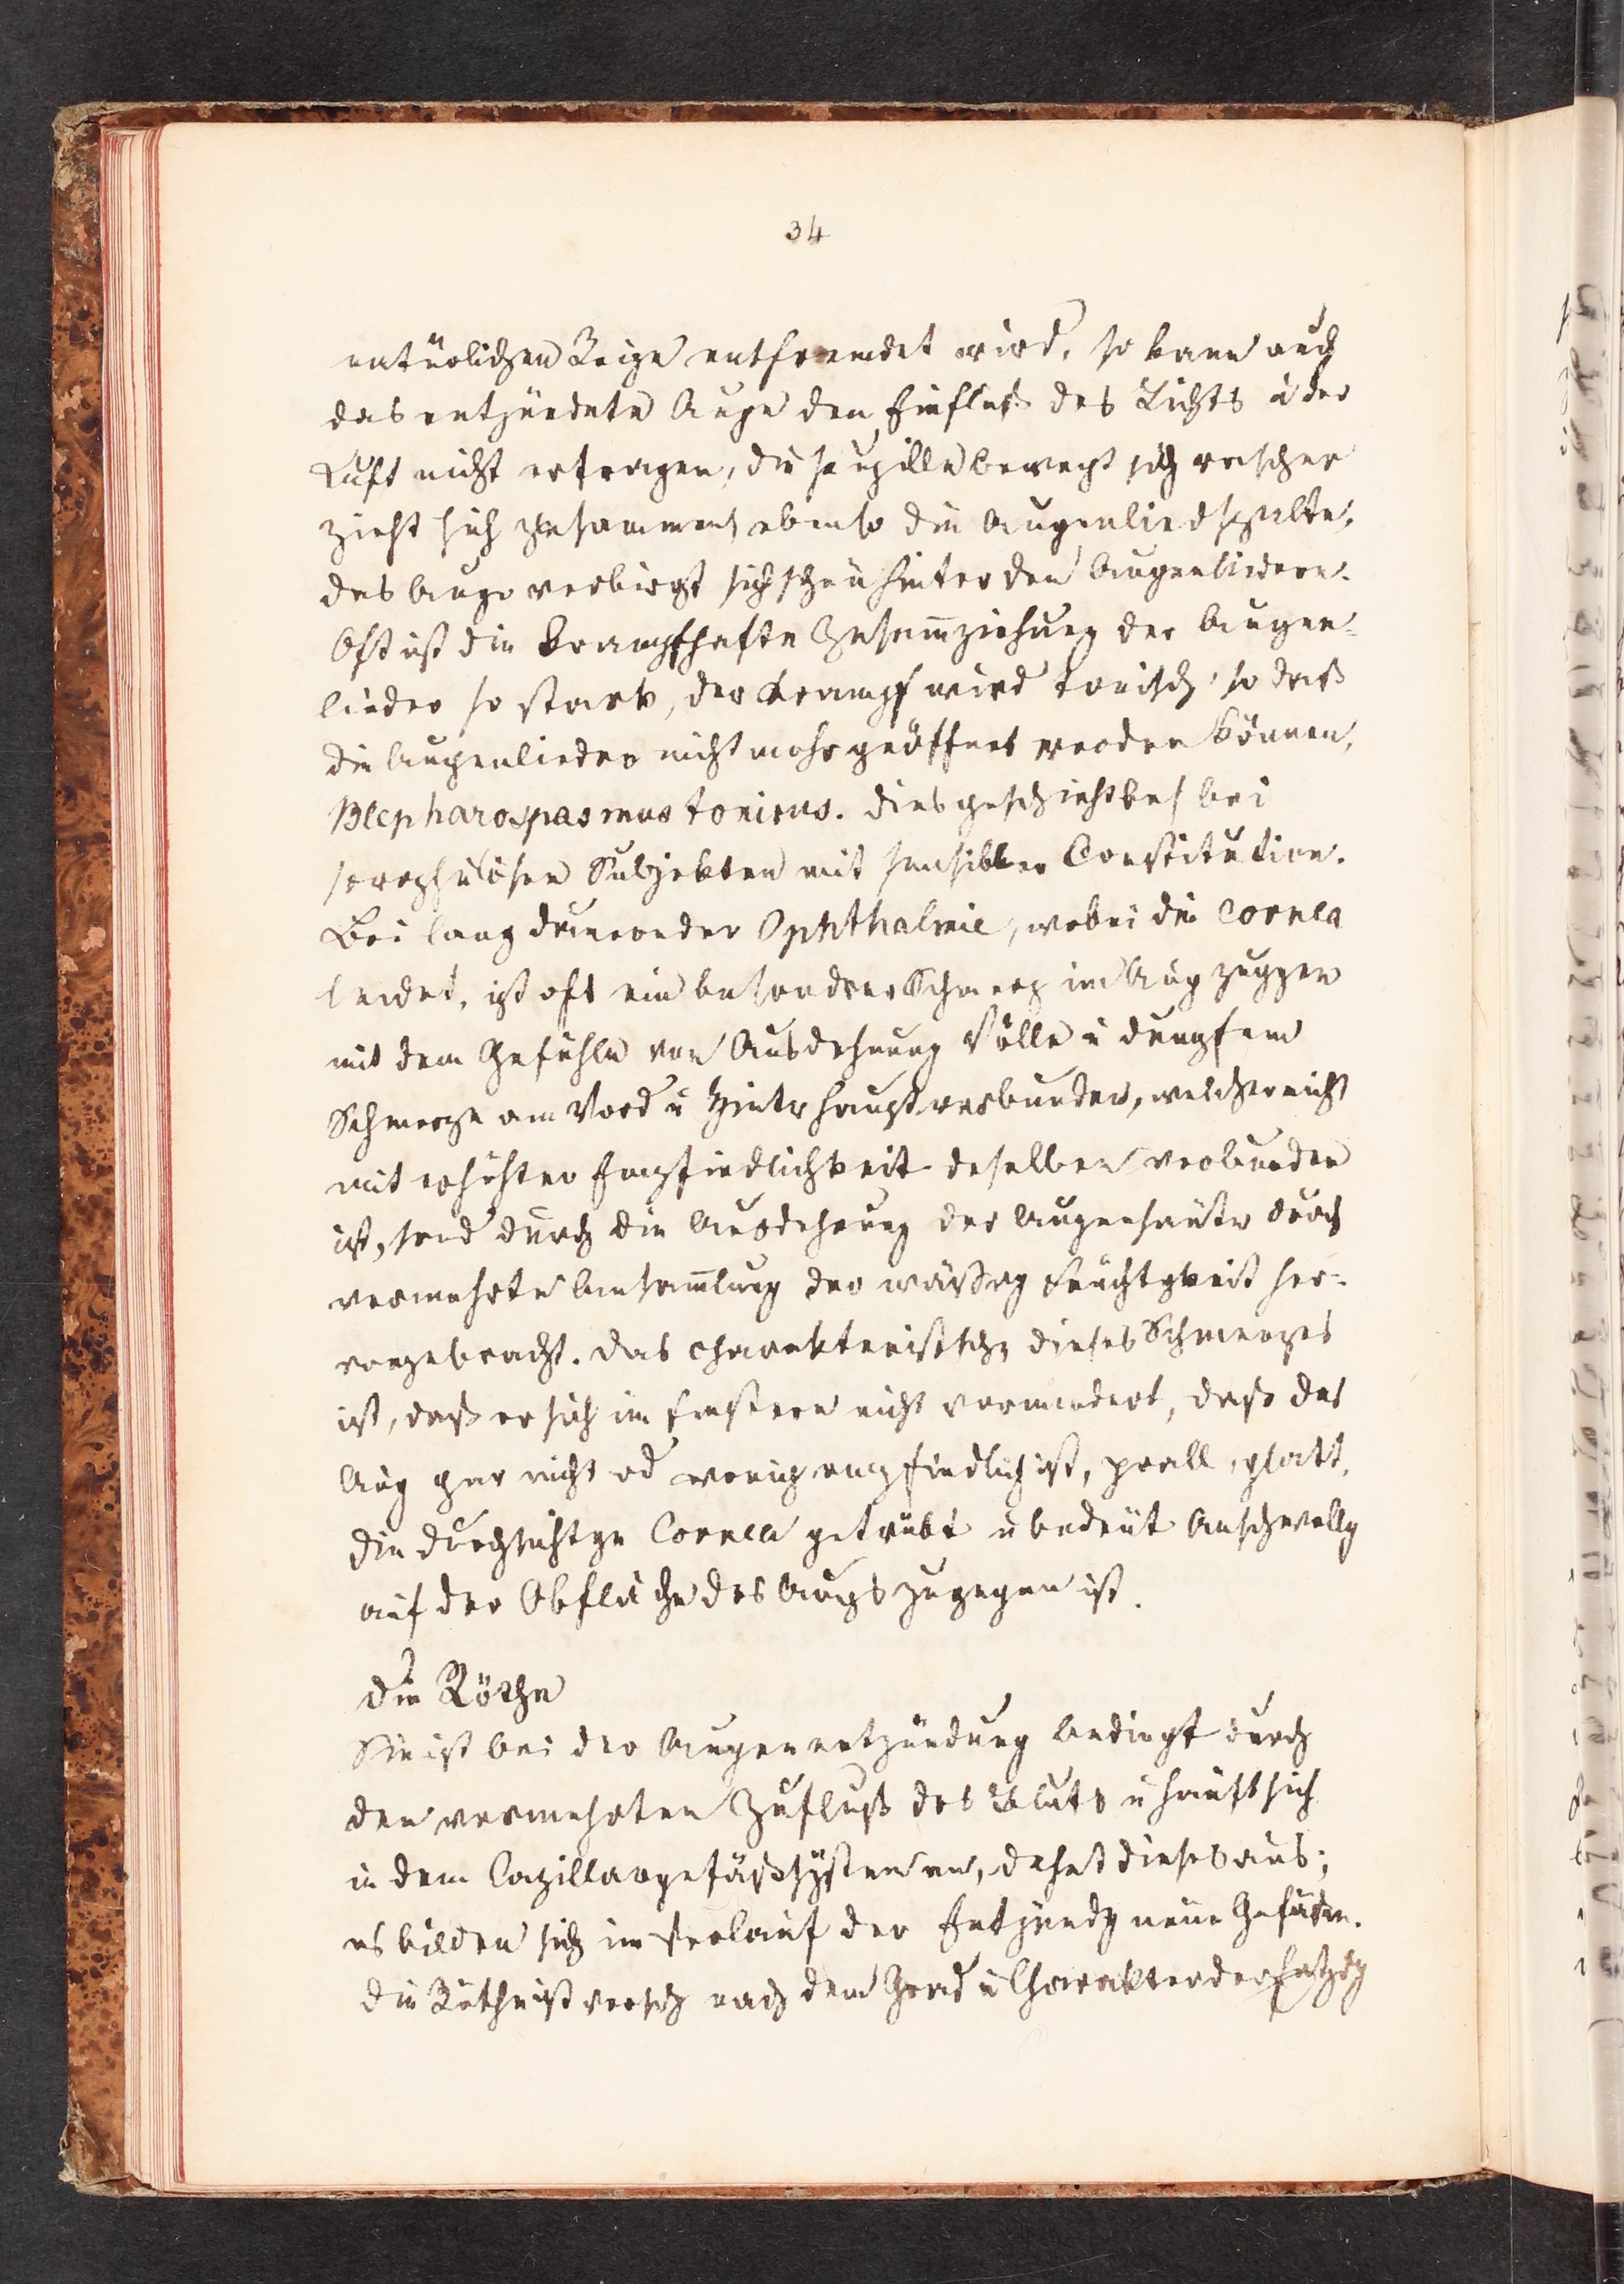 34
natürlichen Reize entfremdet wird, so kann auch
das entzündete Auge den Einfluß des Lichts u der
Luft nicht ertragen, die Pupille bewegt sich rascher
zieht sich zusammen ebenso die Augenliedspalte,
das Auge verbirgt sich scheu hinter den Augenliedern.
Oft ist die krampfhafte Zusam̄ziehung der Augen-
lieder so stark, der Krampf wird tonisch, so daß
die Augenlieder nicht mehr geöffnet werden können,
Blepharospasmus tonicus. Dies geschieht bes bei
scrophulösen Subjekten mit sensibler Constitution.
Bei lang dauernder Ophthalmie, wobei die Cornea
leidet, ist oft ein besonderer Schmerz im Aug zuggen
mit dem Gefühle von Ausdehnung Völle u dumpfem
Schmerze am Vord u Hintrhaupt verbunden, welcher nicht
mit erhöhter Empfindlichkeit deselben verbunden
ist, sond durch die Ausdehnung der Augenhäute durch
vermehrte Ansam̄lung der wäßrg Feuchtgkeit her-
vorgebracht. Das charakteristische dieses Schmerzes
ist, daß er sich im Finstern nicht vermindert, daß das
Aug gar nicht od wenig empfindlich ist, prall, glatt,
die durchsichtge Cornea getrübt u bedeut Anschwellg
auf der Obfläche des Augs zugegen ist.
Die Röthe
Sie ist bei der Augenentzündung bedingt durch
den vermehrten Zufluß des Bluts u häuft sich
in dem Capillargefäßsystem an, dehnt dieses aus;
es bilden sich im Verlauf der Entzündg neue Gefäße.
Die Röthe ist versch nach dem Grad u Charakter der Entzdg